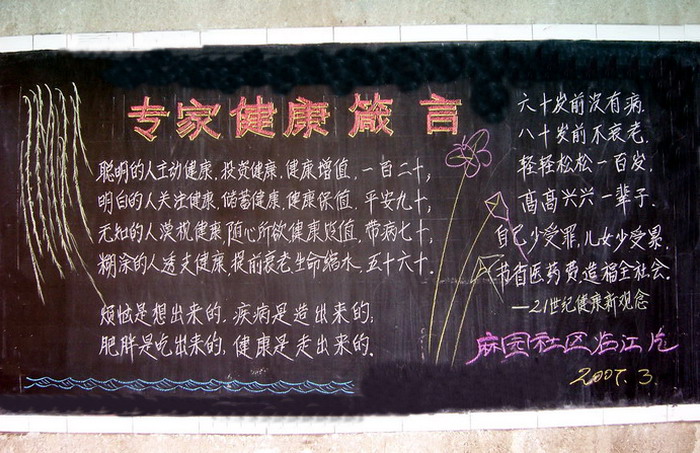 专家健康箴言
聪明的人主动健康,投资健康,健康增值,一百二十;
明白的人关注健康,储蓄健康,健康保值,平安九十;
无知的人漠视健康,随心所欲健康贬值,带病七十;
糊涂的人透支健康,提前衰老,生命缩水,五十六十.
烦恼是想出来的,疾病是造出来的;
肥胖是吃出来的,健康是走出来的.
六十岁前没有病.
八十岁前不衰老.
轻轻松松一百岁.
高高兴兴一辈子.
自己少受罪,儿女少受累.
节省医药费,造福全社会.
—21世纪健康新观念
麻园社区临江片
2007.3.